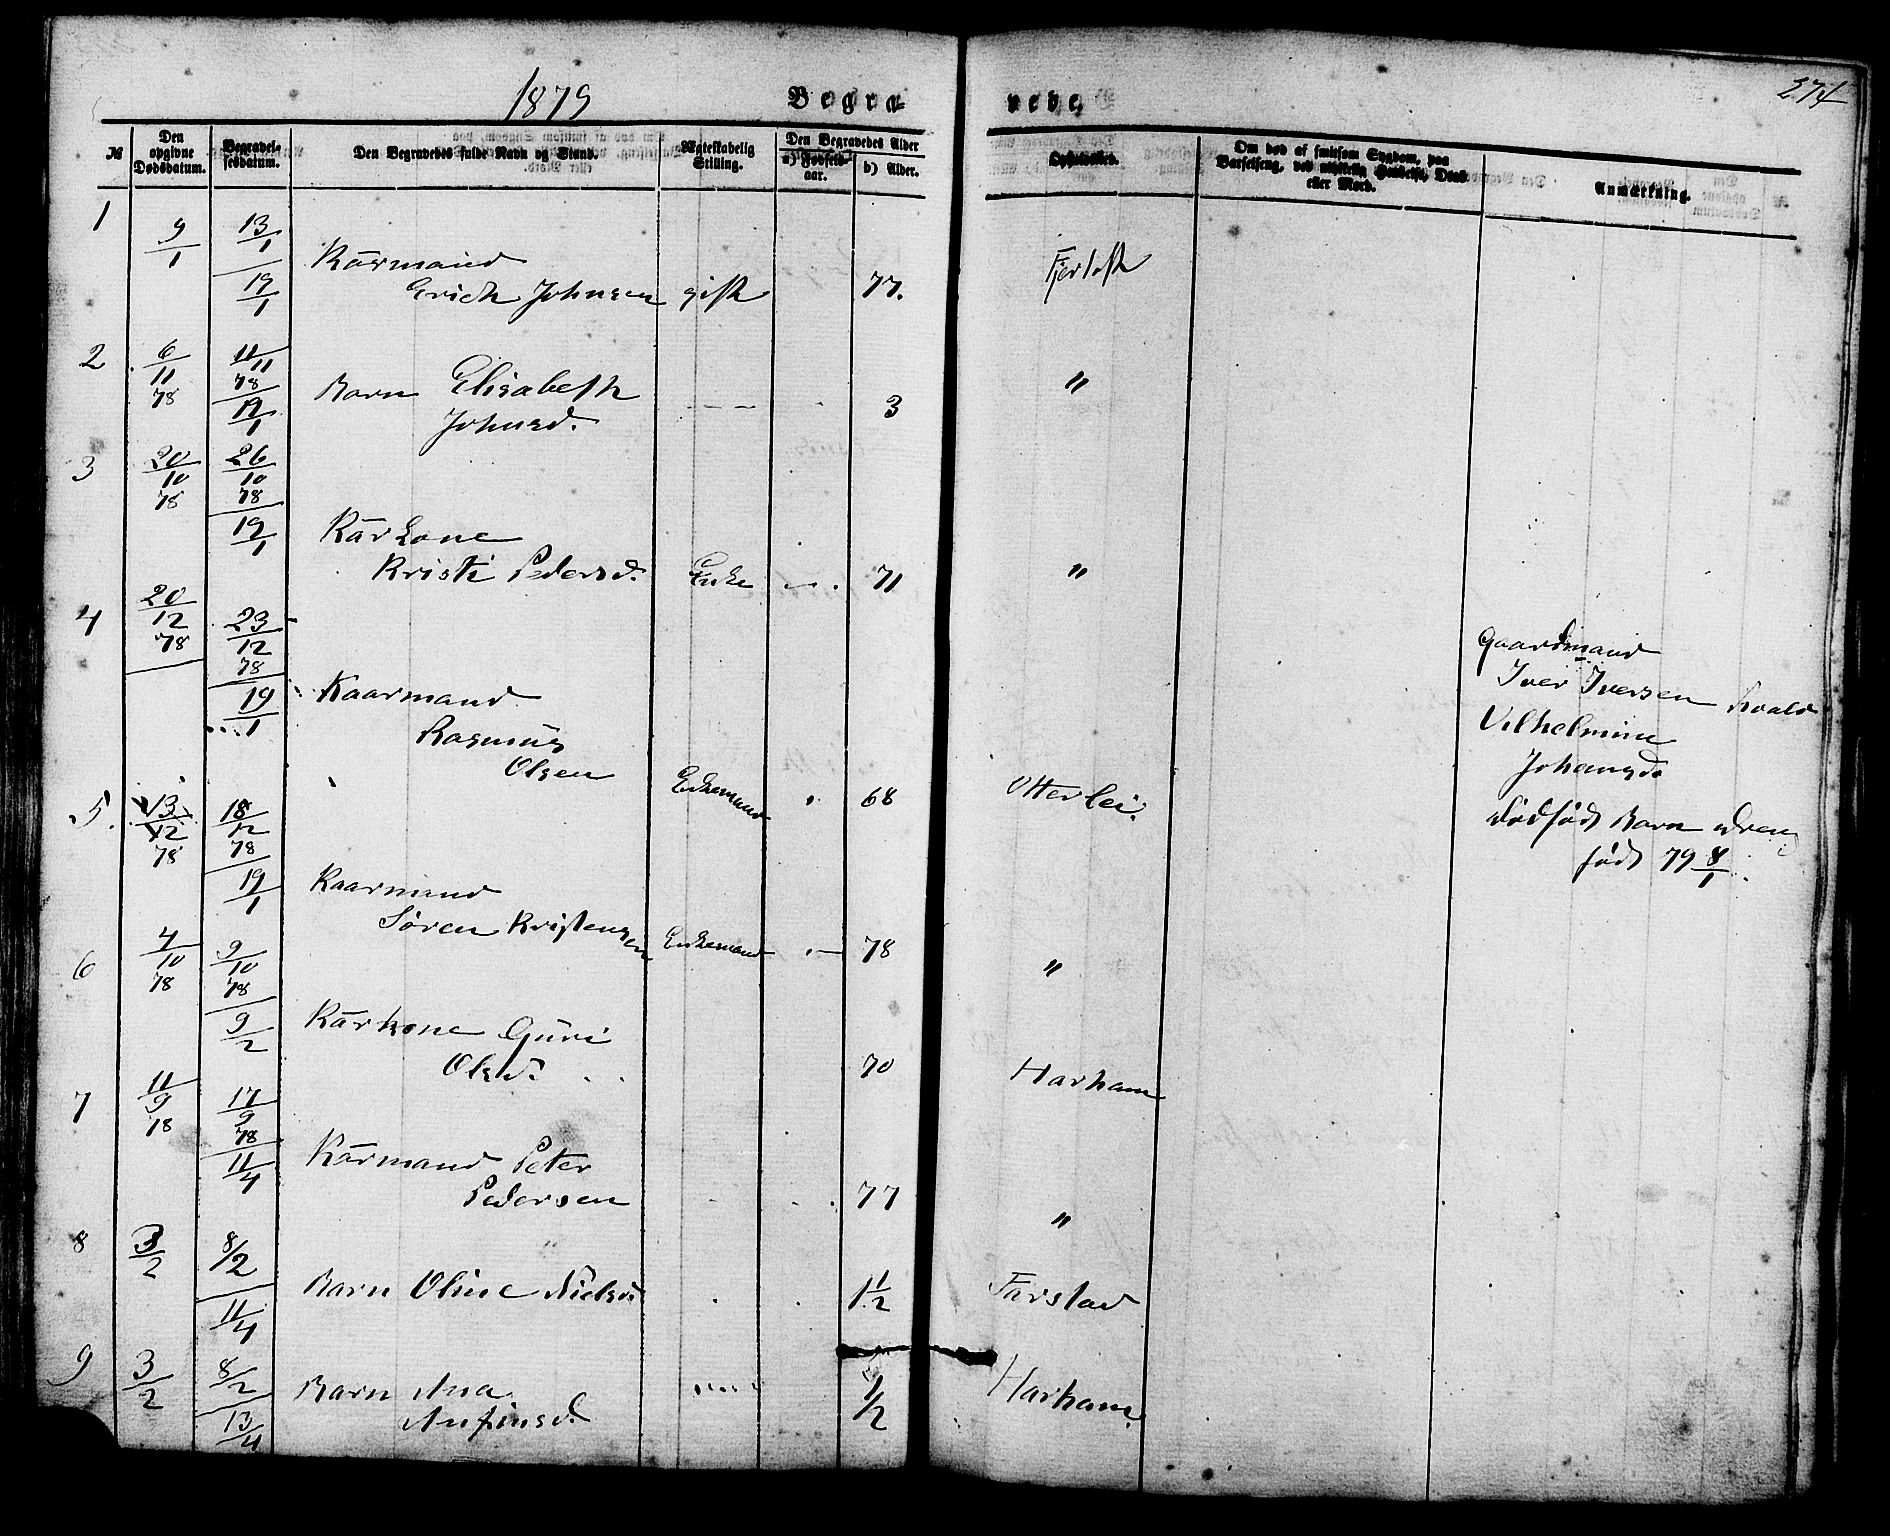 1879 Begravede. 274
№ Den opgivne Dødsdatum. Begravelsesdatum. Den Begravedes fulde Navn og Stand. Ægteskabelig Stilling. Den Begravedes Alder a) Fødselsaar. b) Alder. Opholdssted. Om død af smitsom Sygdom, paa Barselseng, ved ulykkelig Hendelse, Drab eller Mord. Anmærkning.
1 9/1 13/1
19/1 Kårmand
Erich Johnsen gift 77. Fjørtoft
2 6/11 78 11/11 78
19/1 Barn Elisabeth
Johnsd. 3 "
3 20/10 78 26/10 78
19/1 Kårkone
Kristi Pedersd. Enke 71 "
4 20/12 78 23/12 78
19/1 Kaarmand
Rasmus
Olsen Enkemand 68 Otterlei.
Gaardmand
Iver Iversen Roald
Vilhelmine
Johansd.
dødfødt Barn dreng
født 79 8/1.
5. 13/12 78 18/12 78
19/1 Kaarmand
Sören Kristensen Enkemand 78 "
6 4/10 78 9/10 78
9/2 Kårkone Guri
Olsd. 70 Harham
7 11/9 78 17/9 78
11/4 Kårmand Peter
Pedersen 77 "
8 3/2 8/2
11/4 Barn Oline Nielsd. 1 1/2 Farstad
9 3/2 8/2
13/4 Barn Ana
Anfinsd. 1/2 Harham.